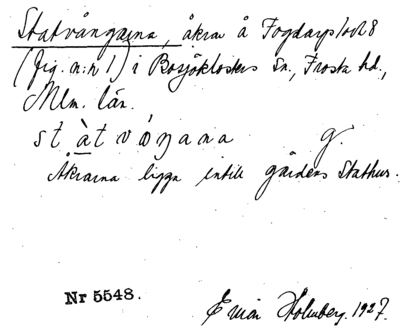 Statvångarna, åkrar å Fogdarp 1 och 8
(fig. n:r 1) i Bosjöklosters sn., Frosta hd.,
Mlm. län.
st àt vóŋana g.
Åkrarna ligga intill gårdens stathus.
Nr 5548.
Holmberg. 1927.